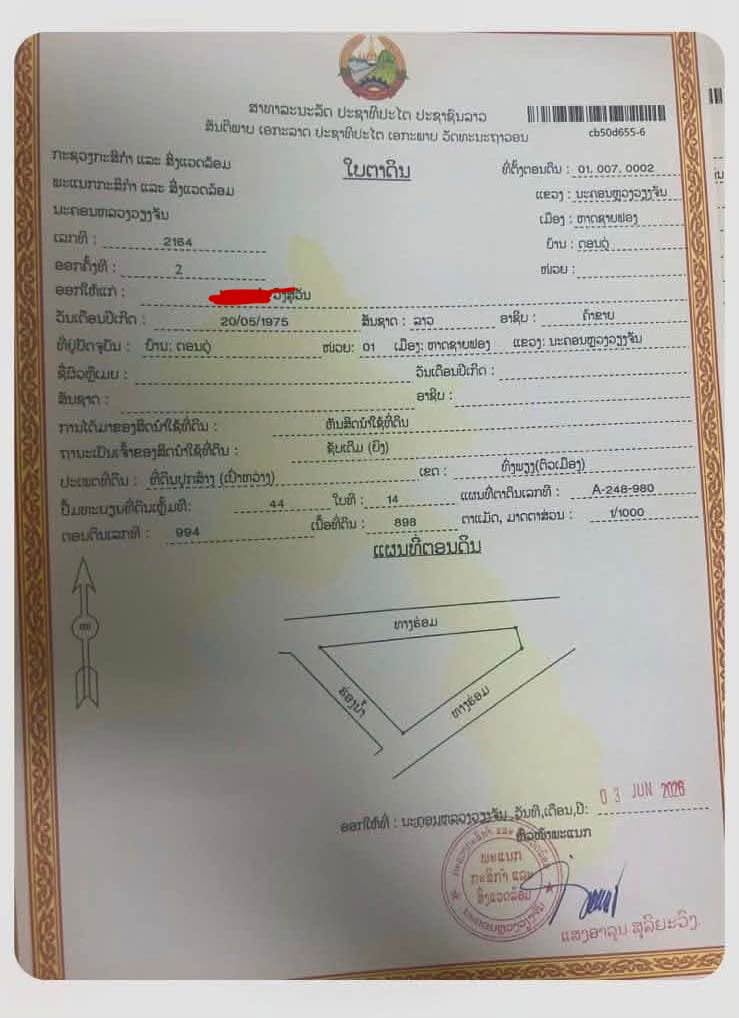 ສາທາລະນະລັດ ປະຊາທິປະໄຕ ປະຊາຊົນລາວ
ສັນຕິພາບ ເອກະລາດ ປະຊາທິປະໄຕ ເອກະພາບ ວັດທະນະຖາວອນ
cb50d655-6
ກະຊວງກະສິກຳ ແລະ ສິ່ງແວດລ້ອມ
ພະແນກກະສິກຳ ແລະ ສິ່ງແວດລ້ອມ
ນະຄອນຫລວງວຽງຈັນ
ໃບຕາດິນ
ທີ່ຕັ້ງຕອນດິນ : 01. 007. 0002
ແຂວງ : ນະຄອນຫຼວງວຽງຈັນ
ເມືອງ : ຫາດຊາຍຟອງ
ບ້ານ : ດອນດູ່
ໜ່ວຍ :
ເລກທີ : 2164
ອອກຄັ້ງທີ : 2
ອອກໃຫ້ແກ່ : ວົງສຸວັນ
ວັນເດືອນປີເກີດ : 20/05/1975 ສັນຊາດ : ລາວ ອາຊີບ : ຄ້າຂາຍ
ທີ່ຢູ່ປັດຈຸບັນ : ບ້ານ: ດອນດູ່ ໜ່ວຍ: 01 ເມືອງ: ຫາດຊາຍຟອງ ແຂວງ: ນະຄອນຫຼວງວຽງຈັນ
ຊື່ຜົວຫຼືເມຍ : ວັນເດືອນປີເກີດ :
ສັນຊາດ : ອາຊີບ :
ການໄດ້ມາຂອງສິດນຳໃຊ້ທີ່ດິນ : ຫັນສິດນຳໃຊ້ທີ່ດິນ
ຖານະເປັນເຈົ້າຂອງສິດນຳໃຊ້ທີ່ດິນ : ຊັບເດີມ (ຍິງ)
ປະເພດທີ່ດິນ : ທີ່ດິນປຸກສ້າງ (ເປົ່າຫວ່າງ) ເຂດ : ທົ່ງພຽງ(ຕົວເມືອງ)
ປຶ້ມທະບຽນທີ່ດິນເຫຼັ້ມທີ: 44 ໃບທີ : 14 ແຜນທີ່ຕາດິນເລກທີ : A-248-980
ຕອນດິນເລກທີ : 994 ເນື້ອທີ່ດິນ : 898 ຕາແມັດ, ມາດຕາສ່ວນ : 1/1000
ແຜນທີ່ຕອນດິນ
ທາງຮ່ອມ
ຮ່ອງນ້ຳ
ທາງຮ່ອມ
ອອກໃຫ້ທີ່ : ນະຄອນຫລວງວຽງຈັນ, ວັນທີ,ເດືອນ,ປີ: 03 JUN 2026
ຫົວໜ້າພະແນກ
ພະແນກ
ກະສິກຳ ແລະ
ສິ່ງແວດລ້ອມ
ນະຄອນຫຼວງວຽງຈັນ
ແສງອາລຸນ ສຸລິຍະວົງ